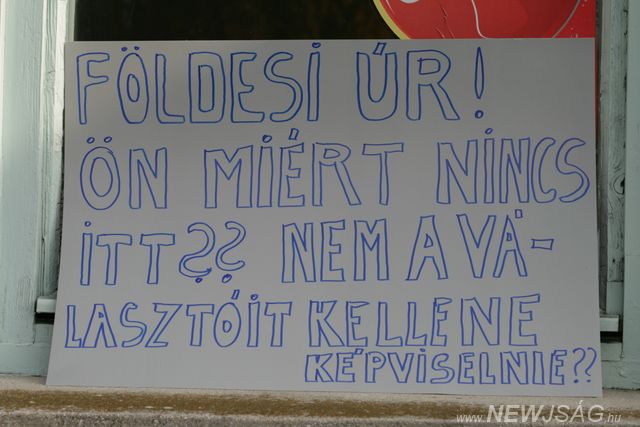 FÖLDESI ÚR!
ÖN MIÉRT NINCS
ITT?? NEM A VÁ-
LASZTÓIT KELLENE
KÉPVISELNIE??
www.NEWJSÁG.hu